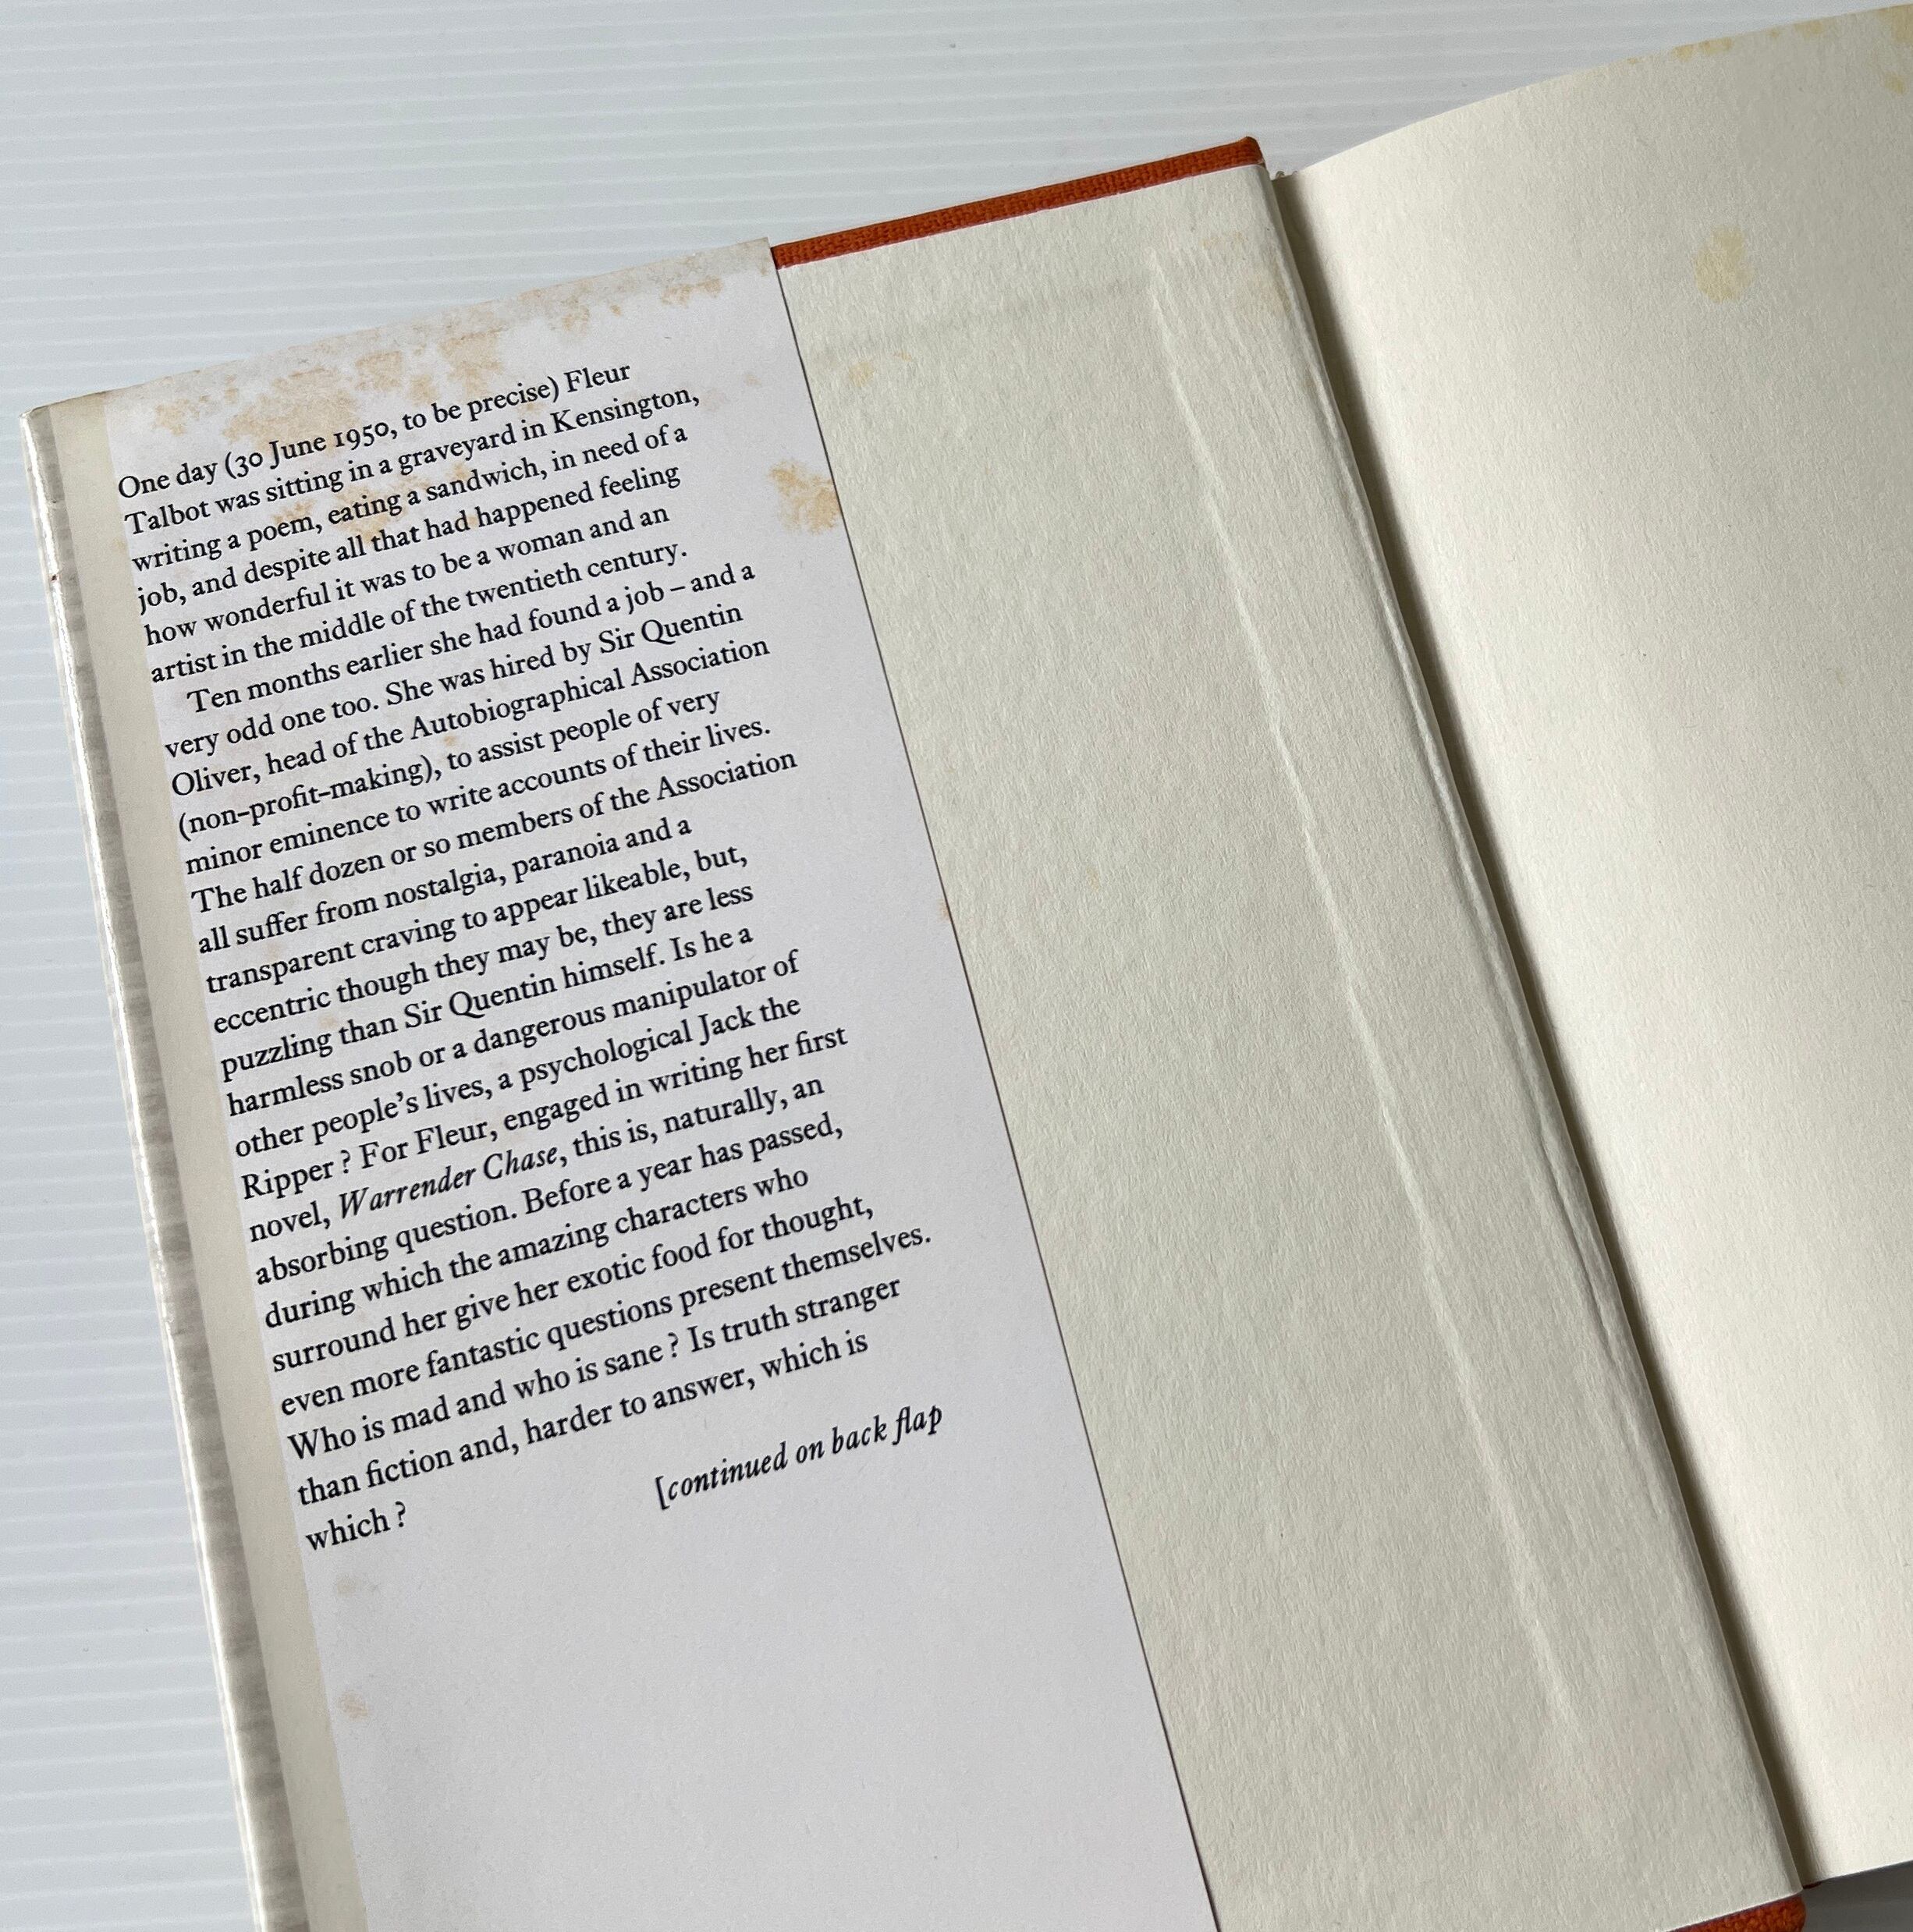 One day (30 June 1950, to be precise) Fleur
Talbot was sitting in a graveyard in Kensington,
writing a poem, eating a sandwich, in need of a
job, and despite all that had happened feeling
how wonderful it was to be a woman and an
artist in the middle of the twentieth century.
Ten months earlier she had found a job – and a
very odd one too. She was hired by Sir Quentin
Oliver, head of the Autobiographical Association
(non-profit-making), to assist people of very
minor eminence to write accounts of their lives.
The half dozen or so members of the Association
all suffer from nostalgia, paranoia and a
transparent craving to appear likeable, but,
eccentric though they may be, they are less
puzzling than Sir Quentin himself. Is he a
harmless snob or a dangerous manipulator of
other people's lives, a psychological Jack the
Ripper ? For Fleur, engaged in writing her first
novel, Warrender Chase, this is, naturally, an
absorbing question. Before a year has passed,
during which the amazing characters who
surround her give her exotic food for thought,
even more fantastic questions present themselves.
Who is mad and who is sane ? Is truth stranger
than fiction and, harder to answer, which is
which ?
[continued on back flap